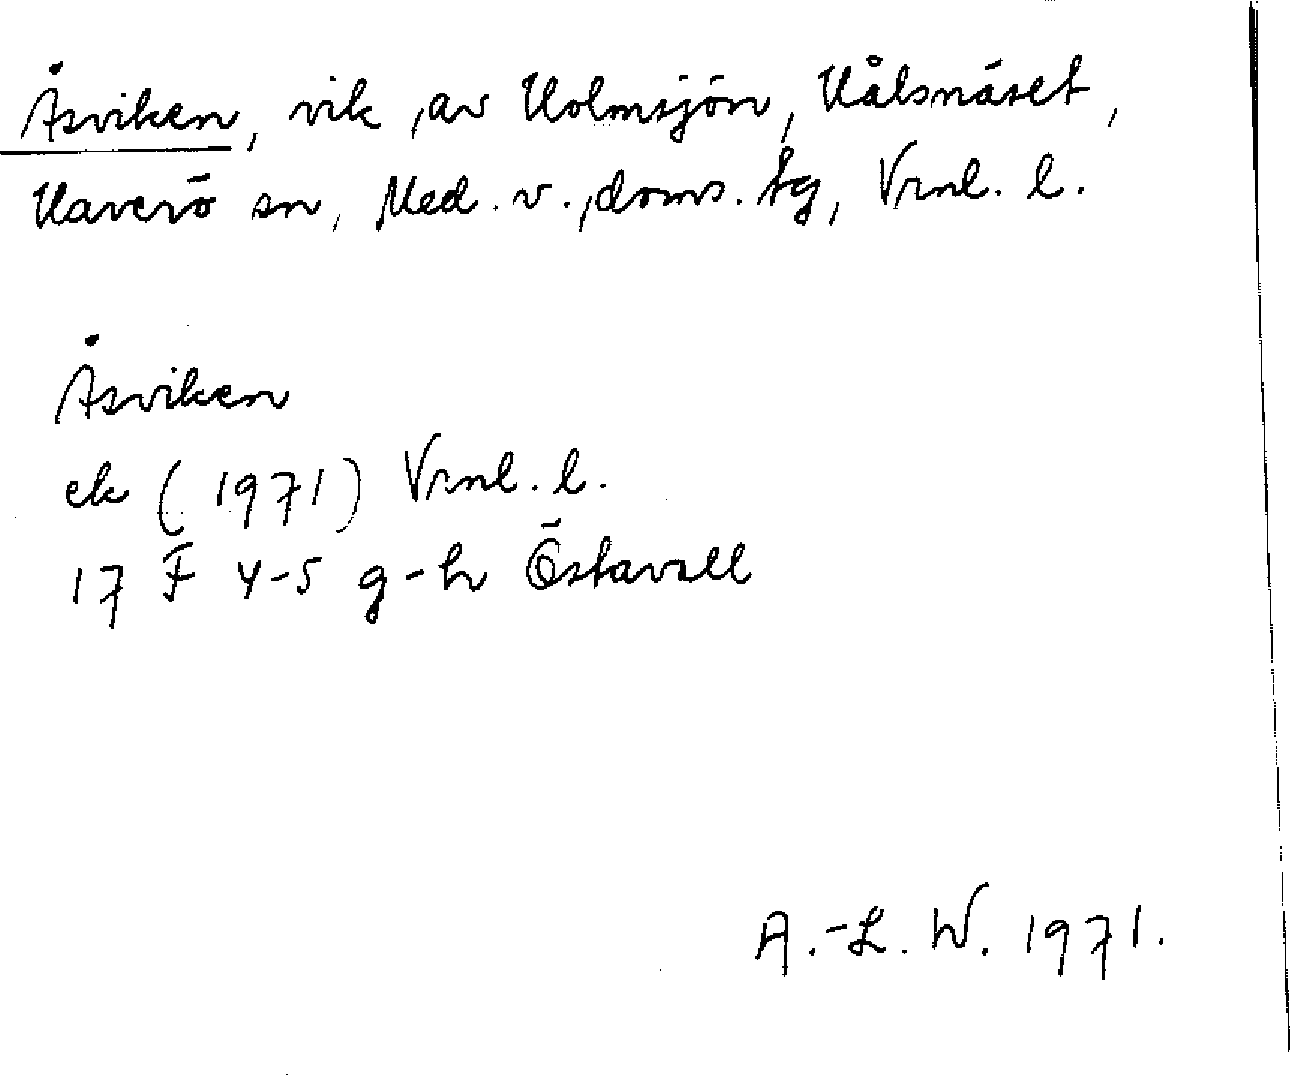 Åsviken, vik, av Holmsjön, Hålsnäset,
Haverö sn, Med. v., doms. tg, Vrnl. l.
Åsviken
ek (1971) Vrnl. l.
17 F 4-5 g-h Östavall
A.-L. W. 1971.